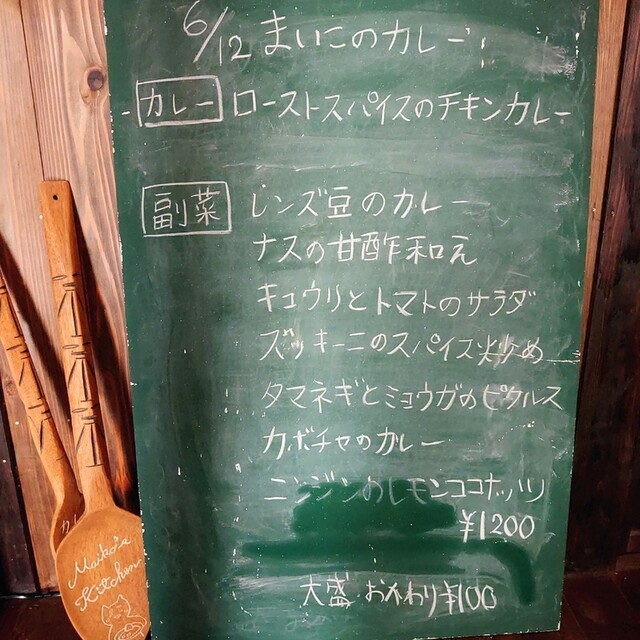 6/12 まいこのカレー
カレー ローストスパイスのチキンカレー
副菜 レンズ豆のカレー
ナスの甘酢和え
キュウリとトマトのサラダ
ズッキーニのスパイス炒め
タマネギとミョウガのピクルス
カボチャのカレー
ニンジンのレモンココナッツ
¥1200
大盛 おかわり ¥100
Maiko's
Kitchen